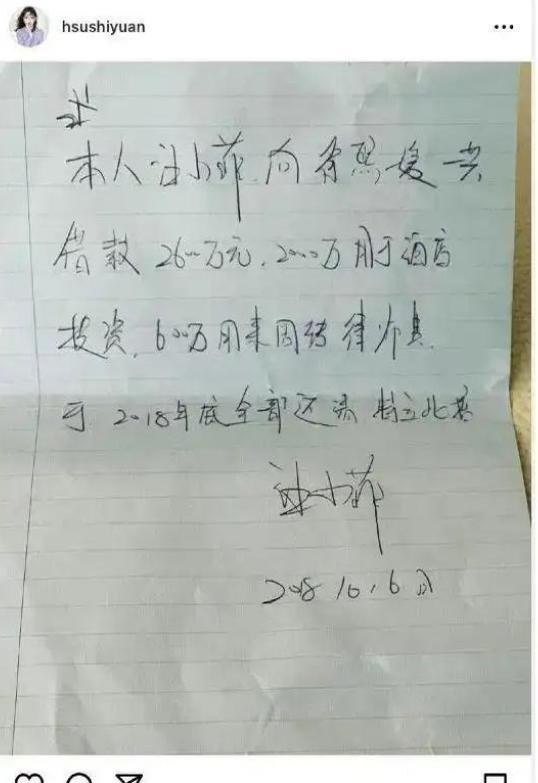 hsushiyuan
本人汪小菲向徐熙媛共
借款2600万元.2000万用于酒店
投资,600万用来周转律师费.
于2018年底全部还清 特立此据
汪小菲
2018 10.6日